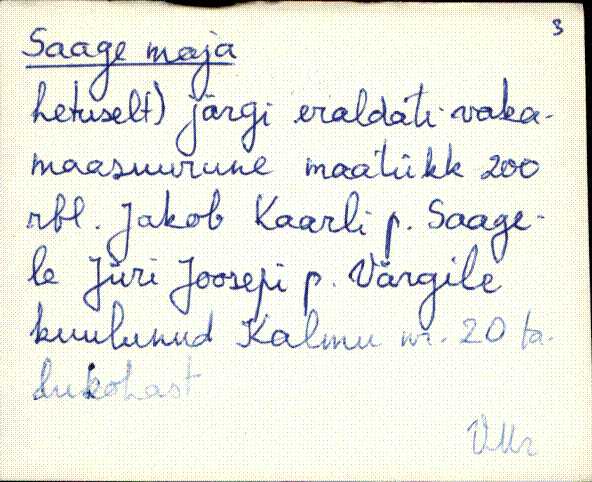 3
Saage maja
hetuselt) järgi eraldati vaka-
maasuurune maatükk 200
rbl. Jakob Kaarli p. Saage-
le Jüri Joosepi p. Värgile
kuulunud Kalmu nr. 20 ta-
lukohast